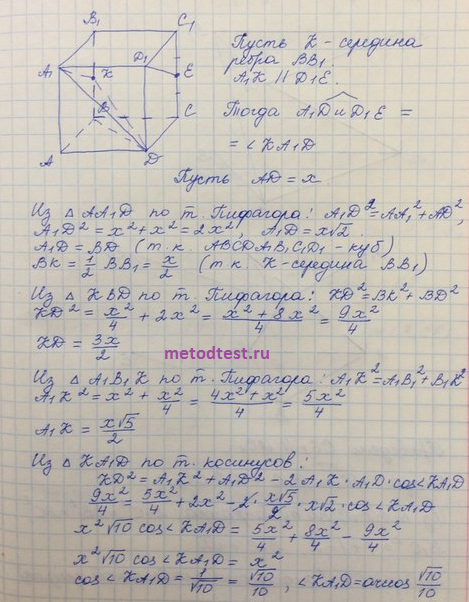 B₁ C₁
A₁ D₁
K E
B C
A D
Пусть K - середина
ребра BB₁.
A₁K || D₁E.
Тогда A₁D и D₁E =
= ∠KA₁D
Пусть AD = x.
Из △ AA₁D по т. Пифагора: A₁D² = AA₁² + AD²,
A₁D² = x² + x² = 2x², A₁D = x√2
A₁D = BD (т.к. ABCDA₁B₁C₁D₁ - куб)
BK = 1/2 BB₁ = x/2 (т к. K - середина BB₁)
Из △ KBD по т. Пифагора: KD² = BK² + BD²
KD² = x²/4 + 2x² = (x² + 8x²)/4 = 9x²/4
KD = 3x/2
metodtest.ru
Из △ A₁B₁K по т. Пифагора: A₁K² = A₁B₁² + B₁K²
A₁K² = x² + x²/4 = (4x² + x²)/4 = 5x²/4
A₁K = x√5/2
Из △ KA₁D по т. косинусов:
KD² = A₁K² + A₁D² - 2 A₁K · A₁D · cos∠KA₁D
9x²/4 = 5x²/4 + 2x² - 2 · x√5/2 · x√2 · cos∠KA₁D
x²√10 cos∠KA₁D = 5x²/4 + 8x²/4 - 9x²/4
x²√10 cos∠KA₁D = x²
cos∠KA₁D = 1/√10 = √10/10, ∠KA₁D = arccos √10/10